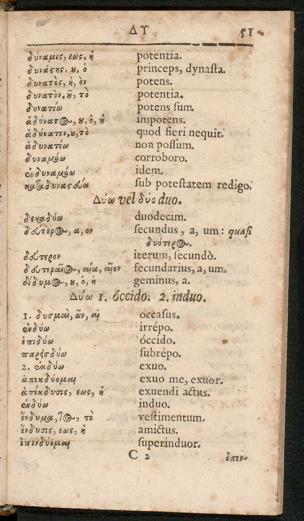 ΔΥ 51
δύναμις, εως, ἡ potentia.
δυνάστης, ου, ὁ princeps, dynasta.
δυνατὸς, ὴ, ὸν potens.
δυνατὸν, οῦ, τὸ potentia.
δυνατέω potens sum.
ἀδύνατος, ου, ὁ, ἡ impotens.
ἀδύνατον, ου, τὸ quod fieri nequit.
ἀδυνατέω non possum.
δυναμόω corroboro.
ἐνδυναμόω idem.
καταδυναστεύω sub potestatem redigo.
Δύω vel δύο duo.
δεκαδύω duodecim.
δεύτερος, α, ον secundus, a, um: quasi
δυότερος.
δεύτερον iterum, secundò.
δευτεραῖος, αία, αῖον secundarius, a, um.
δίδυμος, ου, ὁ, ἡ geminus, a.
Δύω 1. óccido. 2. induo.
1. δυσμαὶ, ῶν, αἱ occasus.
ἐνδύω irrépo.
ἐπιδύω óccido.
παρεισδύω subrépo.
2. ἐκδύω exuo.
ἀπεκδύομαι exuo me, exuor.
ἀπέκδυσις, εως, ἡ exuendi actus.
ἐνδύω induo.
ἔνδυμα, τος, τὸ vestimentum.
ἔνδυσις, εως, ἡ amictus.
ἐπενδύομαι superinduor.
C 2 ἐπεν-